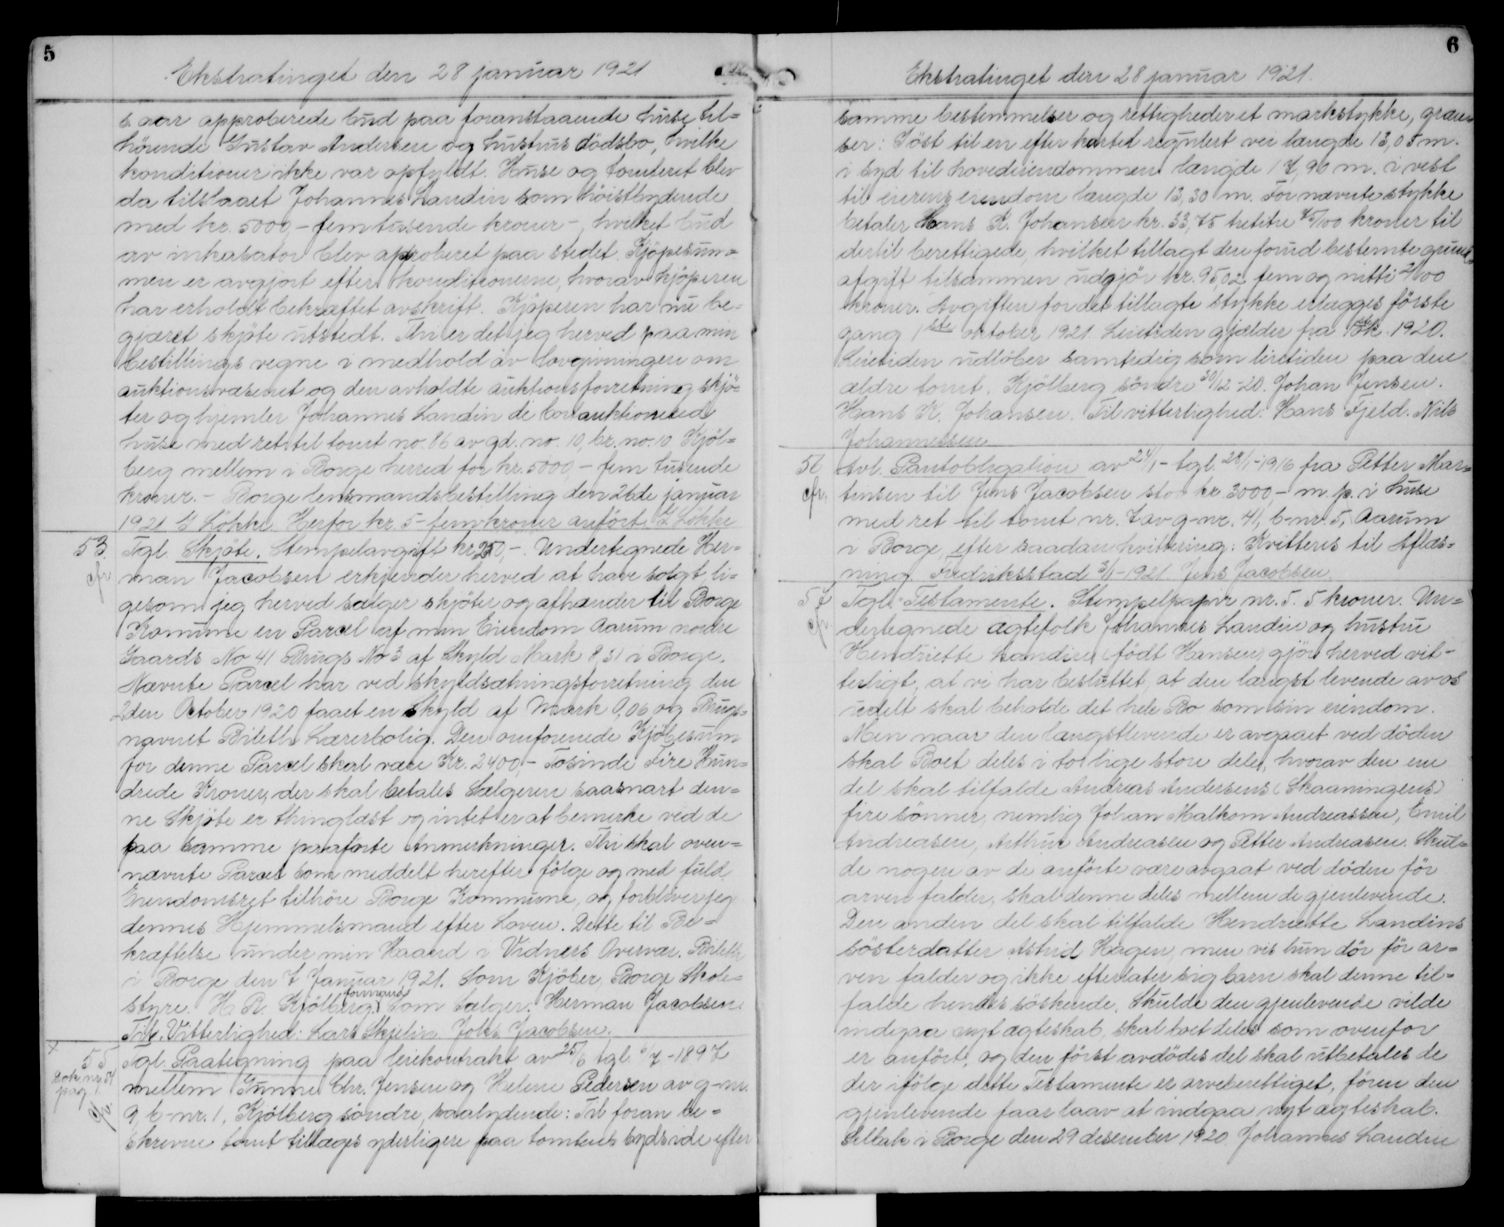 5
Ekstratinget den 28 januar 1921
s aar approberede bud paa foranstaaende huse til-
hörende Gustav Andersen og hustrus dödsbo, hvilke
konditioner ikke var opfyldt. Huse og tomteret blev
da tilslaaet Johannes Landin som höistbydende
med kr. 5000,- femtusende kroner -, hvilket bud
av inkasator blev approberet paa stedet. Kjöpesum-
men er avgjort efter konditionerne, hvorav kjöperen
har erholdt bekræftet avskrift. Kjöperen har nu be-
gjæret skjöte utstedt. Thi er det jeg herved paa min
bestillings vegne i medhold av lovgivningen om
auktionsvæsenet og den avholdte auktionsforretning skjö-
ter og hjemler Johannes Landin de bortauktionerede
huse med ret til tomt no. 86 av gd. no. 10, br. no. 10 Kjöl-
berg mellem i Borge herred for kr. 5000,- fem tusende
kroner. - Borge lensmandsbestilling den 26de januar
1921. G Lökke Herfor kr. 5 - fem kroner anfört G Lökke
53.
cfr.
Tgl Skjöte. Stempelavgift kr. 250,-. Undertegnede Her-
man Jacobsen erkjender herved at have solgt li-
gesom jeg herved sælger skjöter og afhænder til Borge
Komune en Parcel af min Eiendom Aarum nordre
Gaards No 41 Brugs No 3 af Skyld Mark 8,51 i Borge.
Nævnte Parcel har ved skyldsætningsforretning den
2den October 1920 faaet en skyld af Mark 0,06 og Brugs-
navnet Bileth Lærerbolig. Den omforenede Kjöbesum
for denne Parcel skal være Kr. 2400,- Tosinde Fire Hun-
drede Kroner, der skal betales Sælgeren saasnart den-
ne Skjöte er thinglæst og intet er at bemerke ved de
paa samme paaförte Anmerkninger. Thi skal oven-
nævnte Parcel som meddelt herefter fölge og med fuld
Eiendomsret tilhöre Borge Kommune, og forbliver jeg
dennes Hjemmelsmand efter Loven. Dette til Be-
kræftelse under min Haand i Vidners Overvær. Bileth
i Borge den 7 Januar 1921. Som Kjöber, Borge Skole-
styre. H. R. Kjölberg formand Som sælger: Herman Jacobsen.
Til Vitterlighed: Lars Skjelin Johs Jacobsen.
x
55
cfr.
Tgl. Paategning paa leiekontrakt av 25/6 tgl 6/7-1897
mellem Gunne Chr. Jensen og Helene Pedersen av g-nr.
9, b-nr. 1, Kjölberg söndre, saalydende: Til foran be-
skrevne tomt tillægs yderligere paa tomtens sydside efter
6
Ekstratinget den 28 januar 1921.
samme bestemmelser og rettigheder et markstykke, græn-
ser: I öst til en efter kartet regulert vei længde 13,05 m.
i syd til hovedeiendommen længde 17,90 m. i vest
til eierens eiendom længde 13,30 m. For nævnte stykke
betaler Hans K. Johansen kr. 33,75 tretitre 75/100 kroner til
dertil berettigede, hvilket tillagt den forud bestemte grund-
afgift tilsammen udgjör kr. 95,02 fem og nitti 2/100
kroner. Avgiften for det tillagte stykke erlægges förste
gang 1ste oktober 1921. Leietiden gjælder fra 1 Okt. 1920.
Leietiden udlöber samtidig som leietiden paa den
ældre tomt. Kjölberg söndre 30/12-20. Johan Jensen.
Hans K. Johansen. Til vitterlighed: Hans Fjeld. Nils
Johannessen
56
cfr.
Avl. Pantobligation av 24/1 - tgl. 28/1-1916 fra Petter Mar-
tinsen til Jens Jacobsen stor kr 3000,- m. p. i huse
med ret til tomt nr. 7 av g-nr. 41, b-nr. 5, Aarum
i Borge, efter saadan kvittering: Kvitteres til Aflæs-
ning. Fredriksstad 3/1-1921. Jens Jacobsen
57
cfr.
Tgl. Testamente. Stempelpapir nr. 5. 5 kroner. Un-
dertegnede ægtefolk Johannes Landin og hustru
Hendriette Landin (född Hansen) gjör herved vit-
terligt, at vi har besluttet, at den længst levende av os
udelt skal beholde det hele Bo som sin eiendom.
Men naar den længstlevende er avgaaet ved döden
skal Boet deles i to lige store dele, hvorav den ene
del skal tilfalde Andreas Andersens (Skaaningens)
fire sönner, nemlig Johan Malkom Andreassen, Emil
Andreasen, Arthur Andreasen og Petter Andreasen. Skul-
de nogen av de anförte være avgaat ved döden för
arven falder, skal denne deles mellem de gjenlevende.
Den anden del skal tilfalde Hendriette Landins
sösterdatter Astrid Hagen, men vis hun dör för ar-
ven falder og ikke efterlater sig barn skal denne til-
falde hendes söskende. Skulde den gjenlevende vilde
indgaa nyt ægteskab, skal boet deles som ovenfor
er anfört, og den först avdödes del skal utbetales de
der ifölge dette Testamente er arveberettiget, förend den
gjenlevende faar laav at indgaa nyt ægteskab.
Sellebk i Borge den 29 desember 1920. Johannes Landin